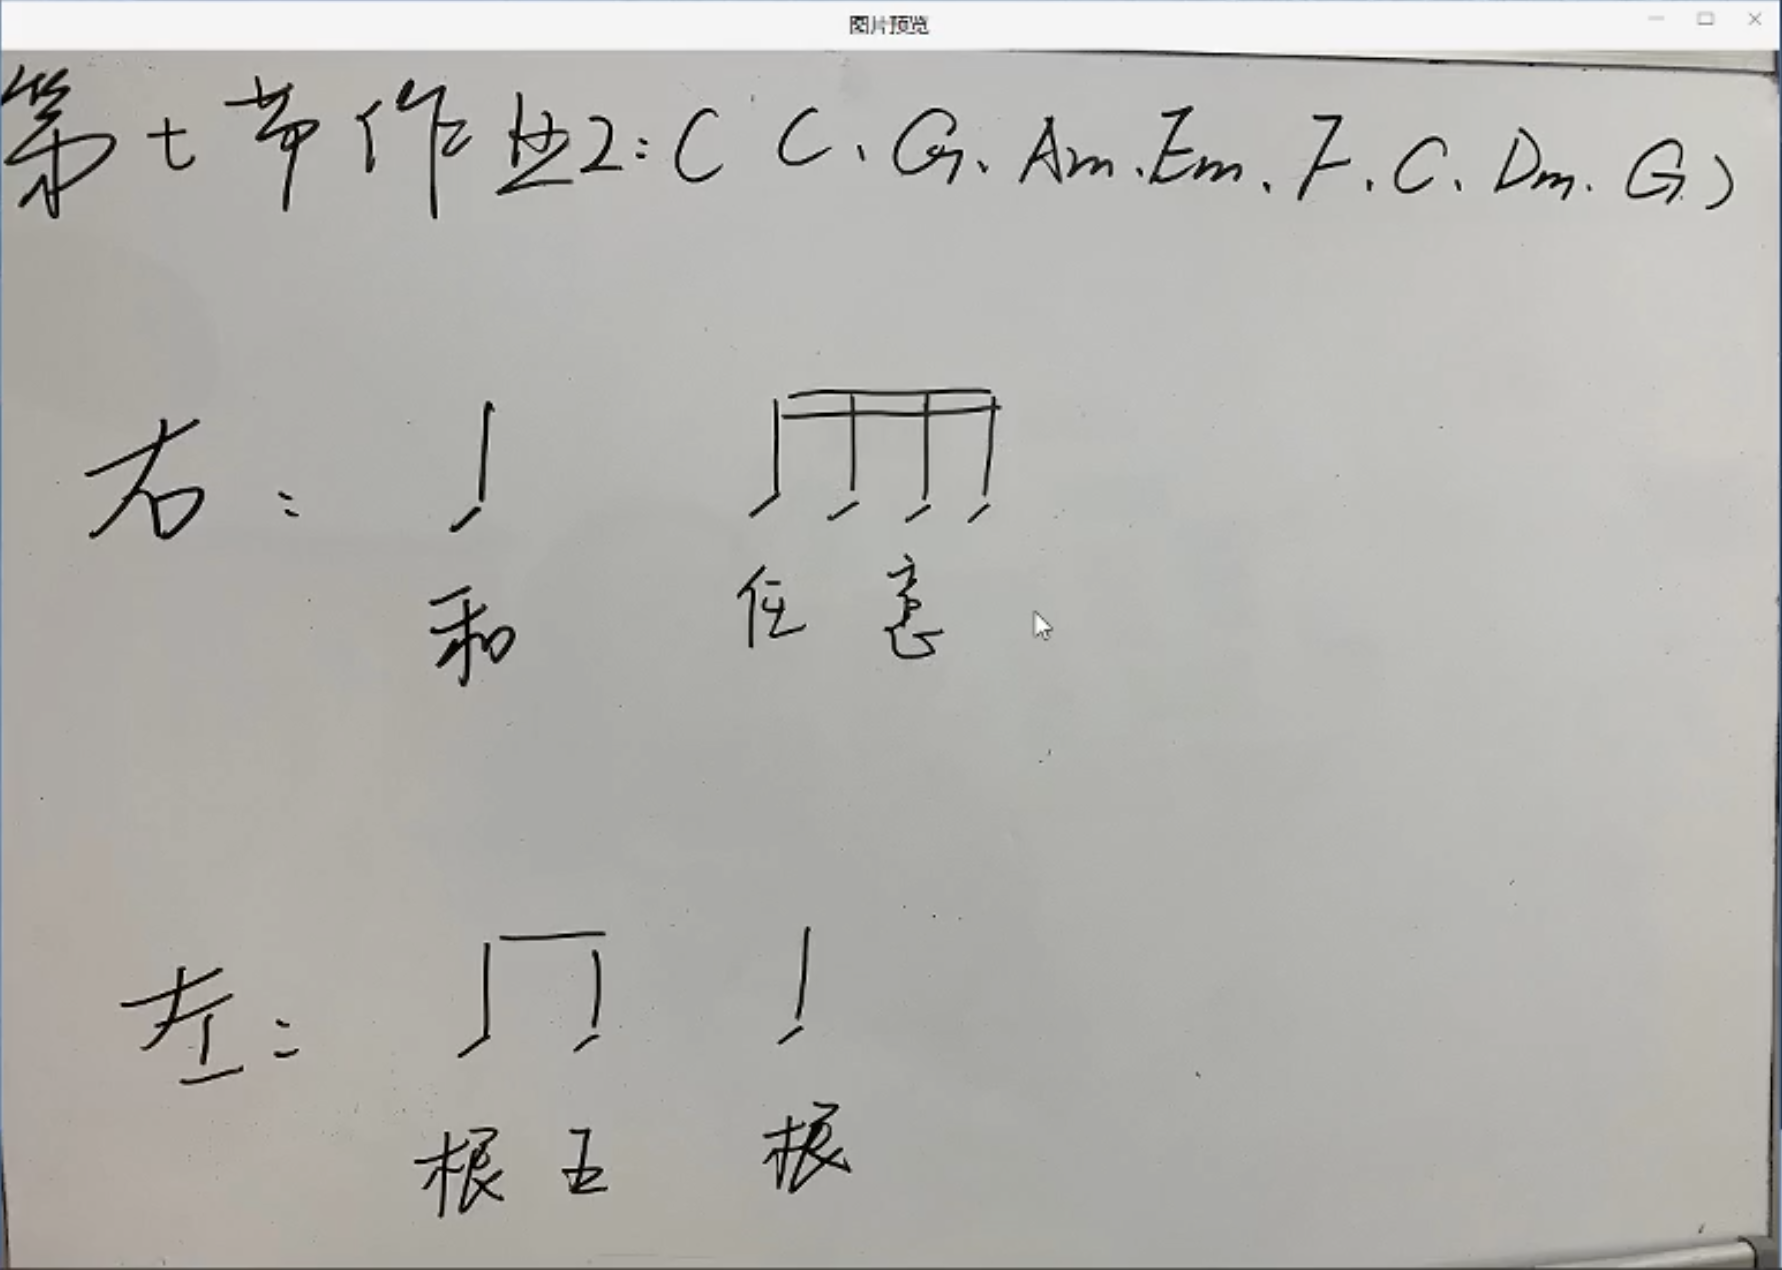 图片预览
第七节作业2:(C、G、Am、Em、F、C、Dm、G)
右:
和 任意
左:
根 五 根